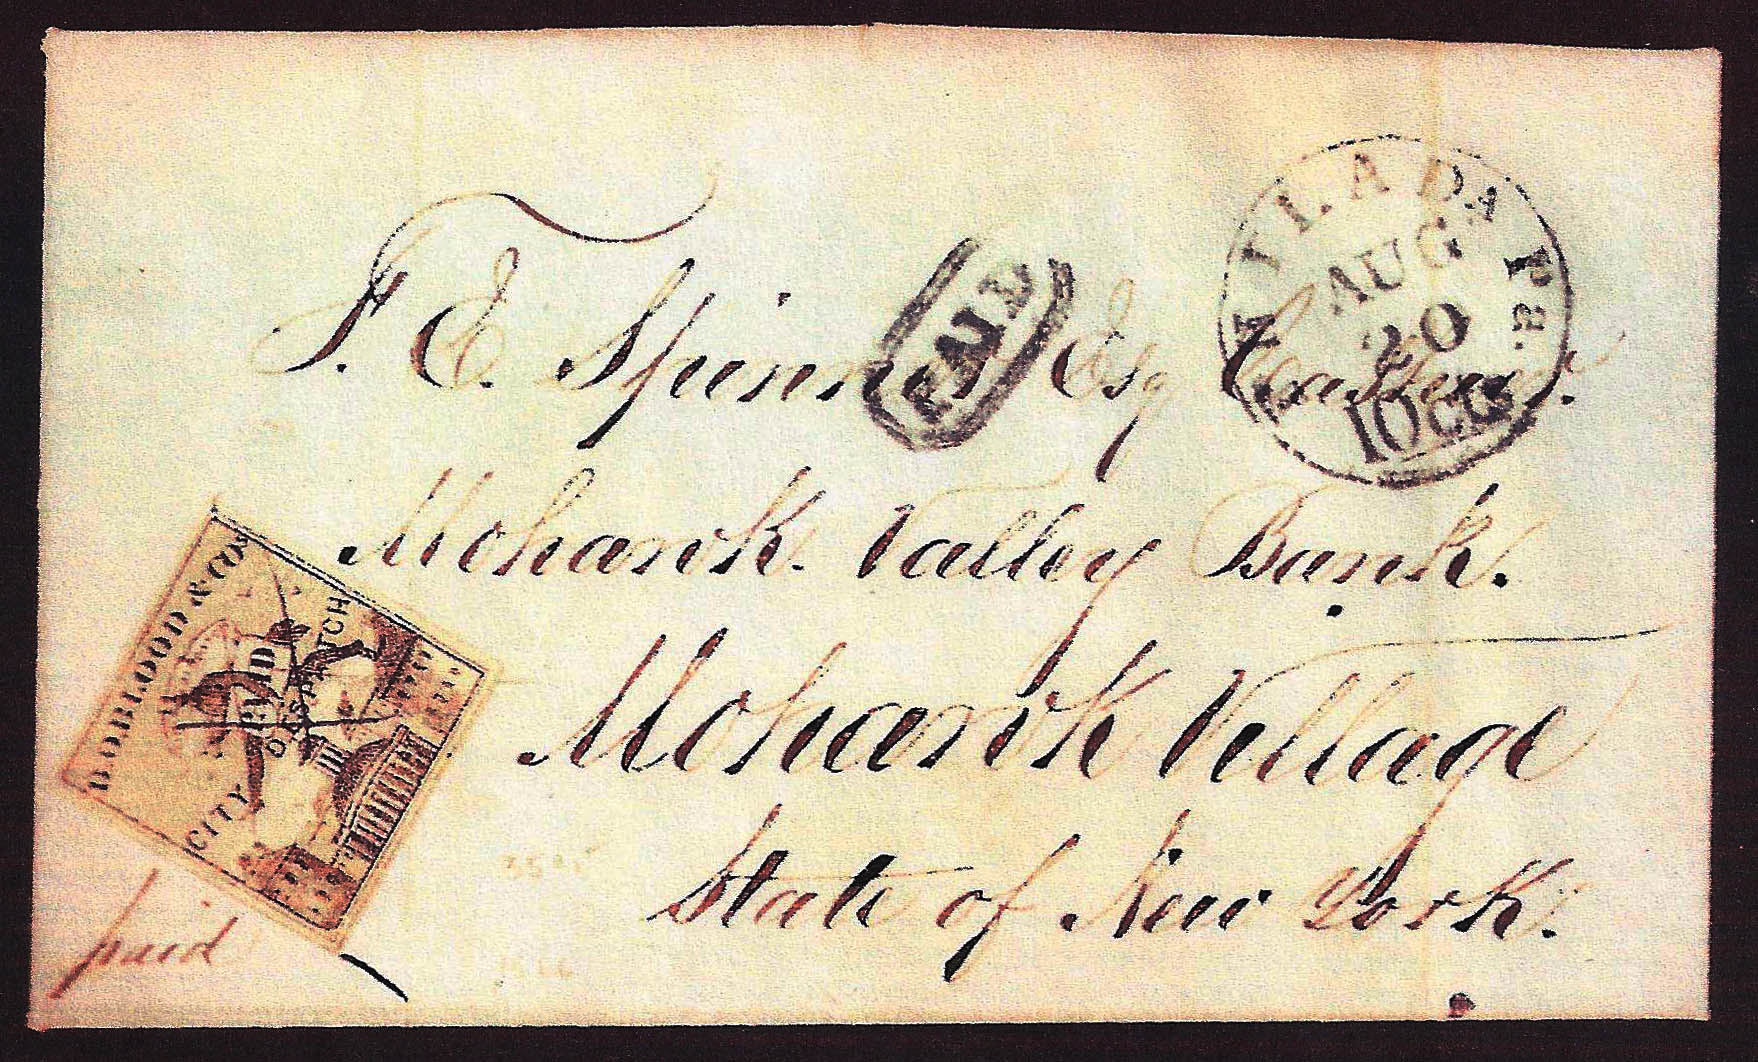 PHILADA Pa.
AUG
20
10 cts
PAID
F. E. Spinner Esq Cashier.
Mohawk. Valley Bank.
Mohawk Village
State of New York.
D.O.BLOOD & CO's
CITY DESPATCH
PAID
POST
paid